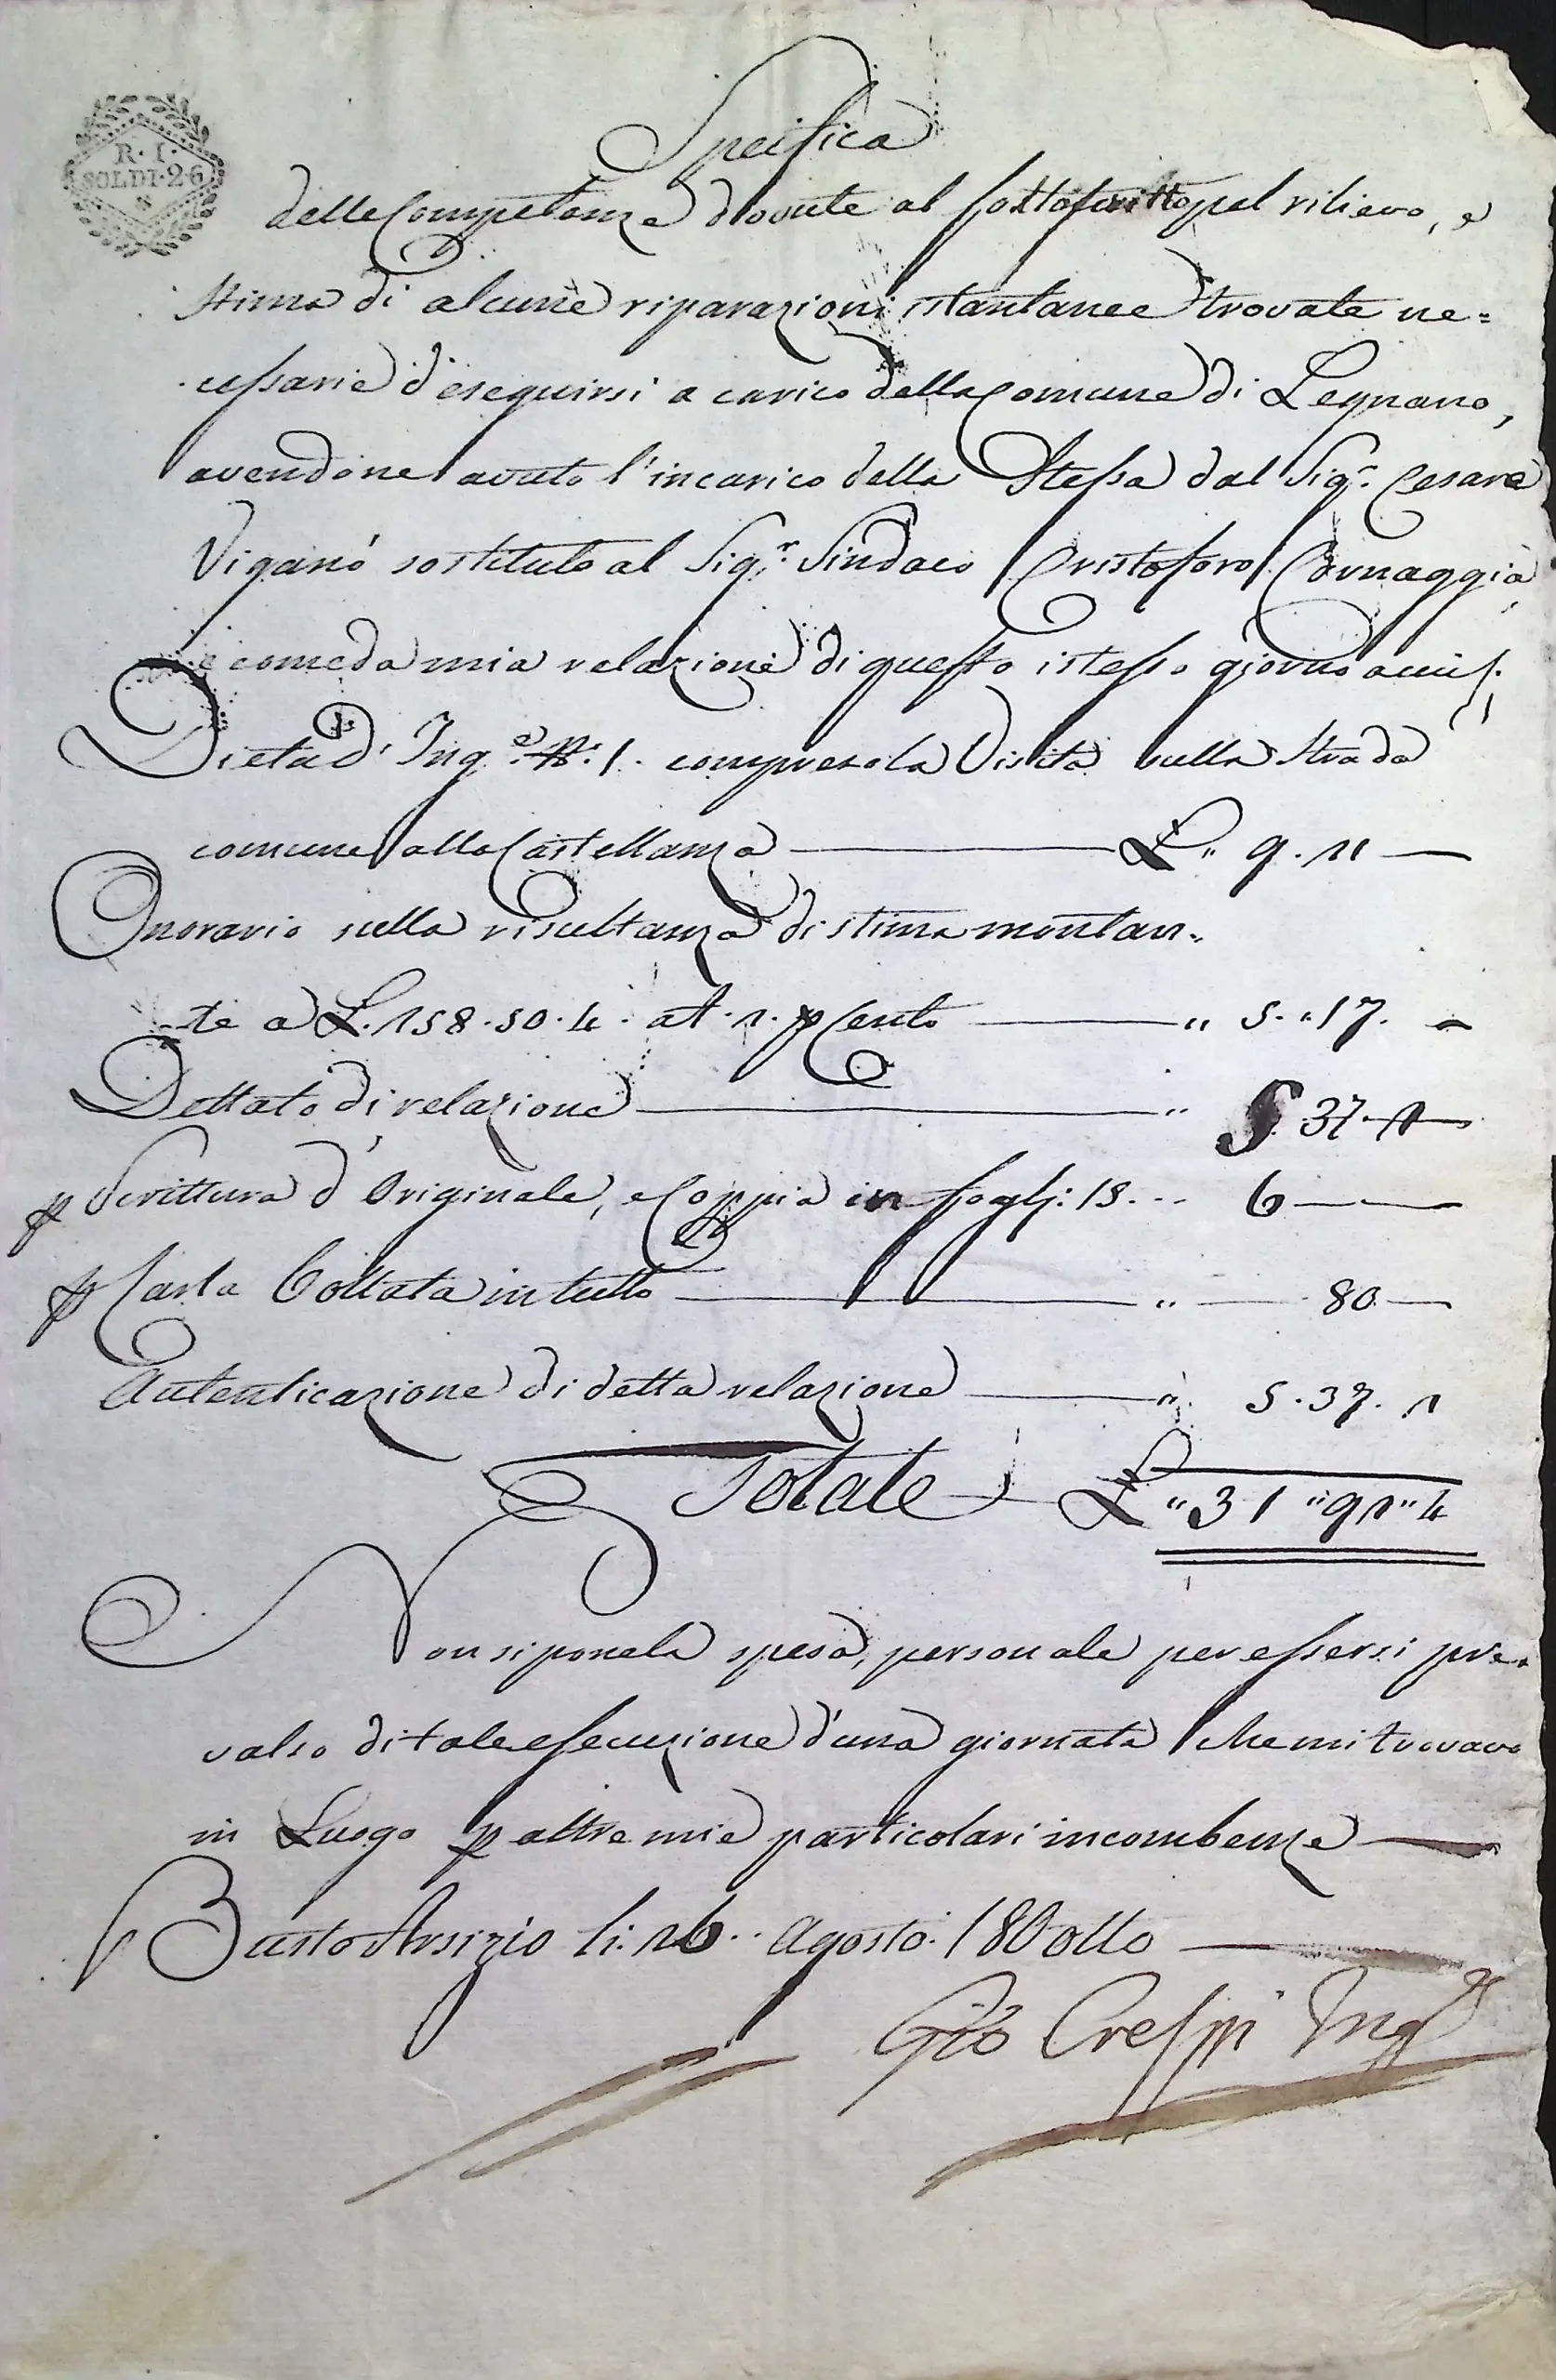 R. I.
SOLDI. 26
Speifica
delle Competenze dovute al sottoscritto pel rilievo, e
stima di alcune riparazioni istantanee trovate ne=
cessarie d'eseguirsi a carico della Comune di Legnano,
avendone avuto l'incarico della Stessa dal Sigr. Cesare
Viganò sostituto al Sigr. Sindaco Cristoforo Cornaggia
e come da mia relazione di questo istesso giorno
Dieta d' Inge. 1. compreso la Visita sulla Strada
comune alla Castellanza L" 9. 11
Onorario sulla risultanza di stima montan=
te a L. 158. 50. 4. al 1. p Cento " 5. "17.
Dettato di relazione " 5. 37. 1
p Scrittura d' Originale, e Coppia in fogli: 18 6
p Carta Bollata in tutto " 80
Autenticazione di detta relazione " 5. 37. 1
Totale L "31 "91" 4
Non si pone la spesa, personale per essersi pre=
valso di tale esecuzione d'una giornata che mi trovavo
in Luogo p altre mie particolari incombenze
Busto Arsizio li: 16.. Agosto. 180otto
Gio Crespi Ingr